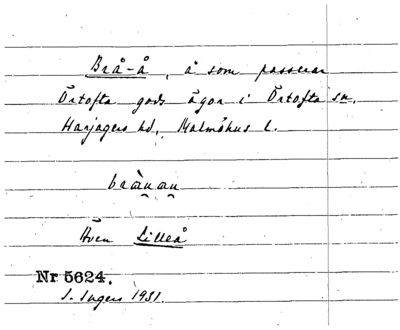 Brå-å, å som passerar
Örtofta gods ägor i Örtofta sn,
Harjagers hd, Malmöhus l.
bråu̯au̯
Även Lilleå
Nr 5624.
I. Ingers 1931.